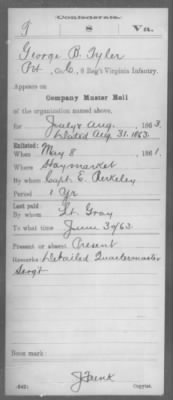 Confederate.
T 8 Va.
George B. Tyler
Pvt, Co. C, 8 Reg't Virginia Infantry.
Appears on
Company Muster Roll
of the organization named above,
for July & Aug., 1863.
Dated Aug. 31. 1863.
Enlisted:
When May 8, 1861.
Where Haymarket
By whom Capt. E. Berkeley
Period 1 Yr
Last paid
By whom Lt. Gray
To what time June 30/63
Present or absent Present
Remarks: Detailed Quartermaster
Sergt
Book mark:
J Trunk
(642) Copyist.